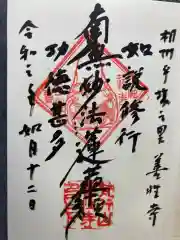 相州平塚之里 善性寺
如説修行
南無妙法蓮華経
功徳甚多
令和三年 如月十二日